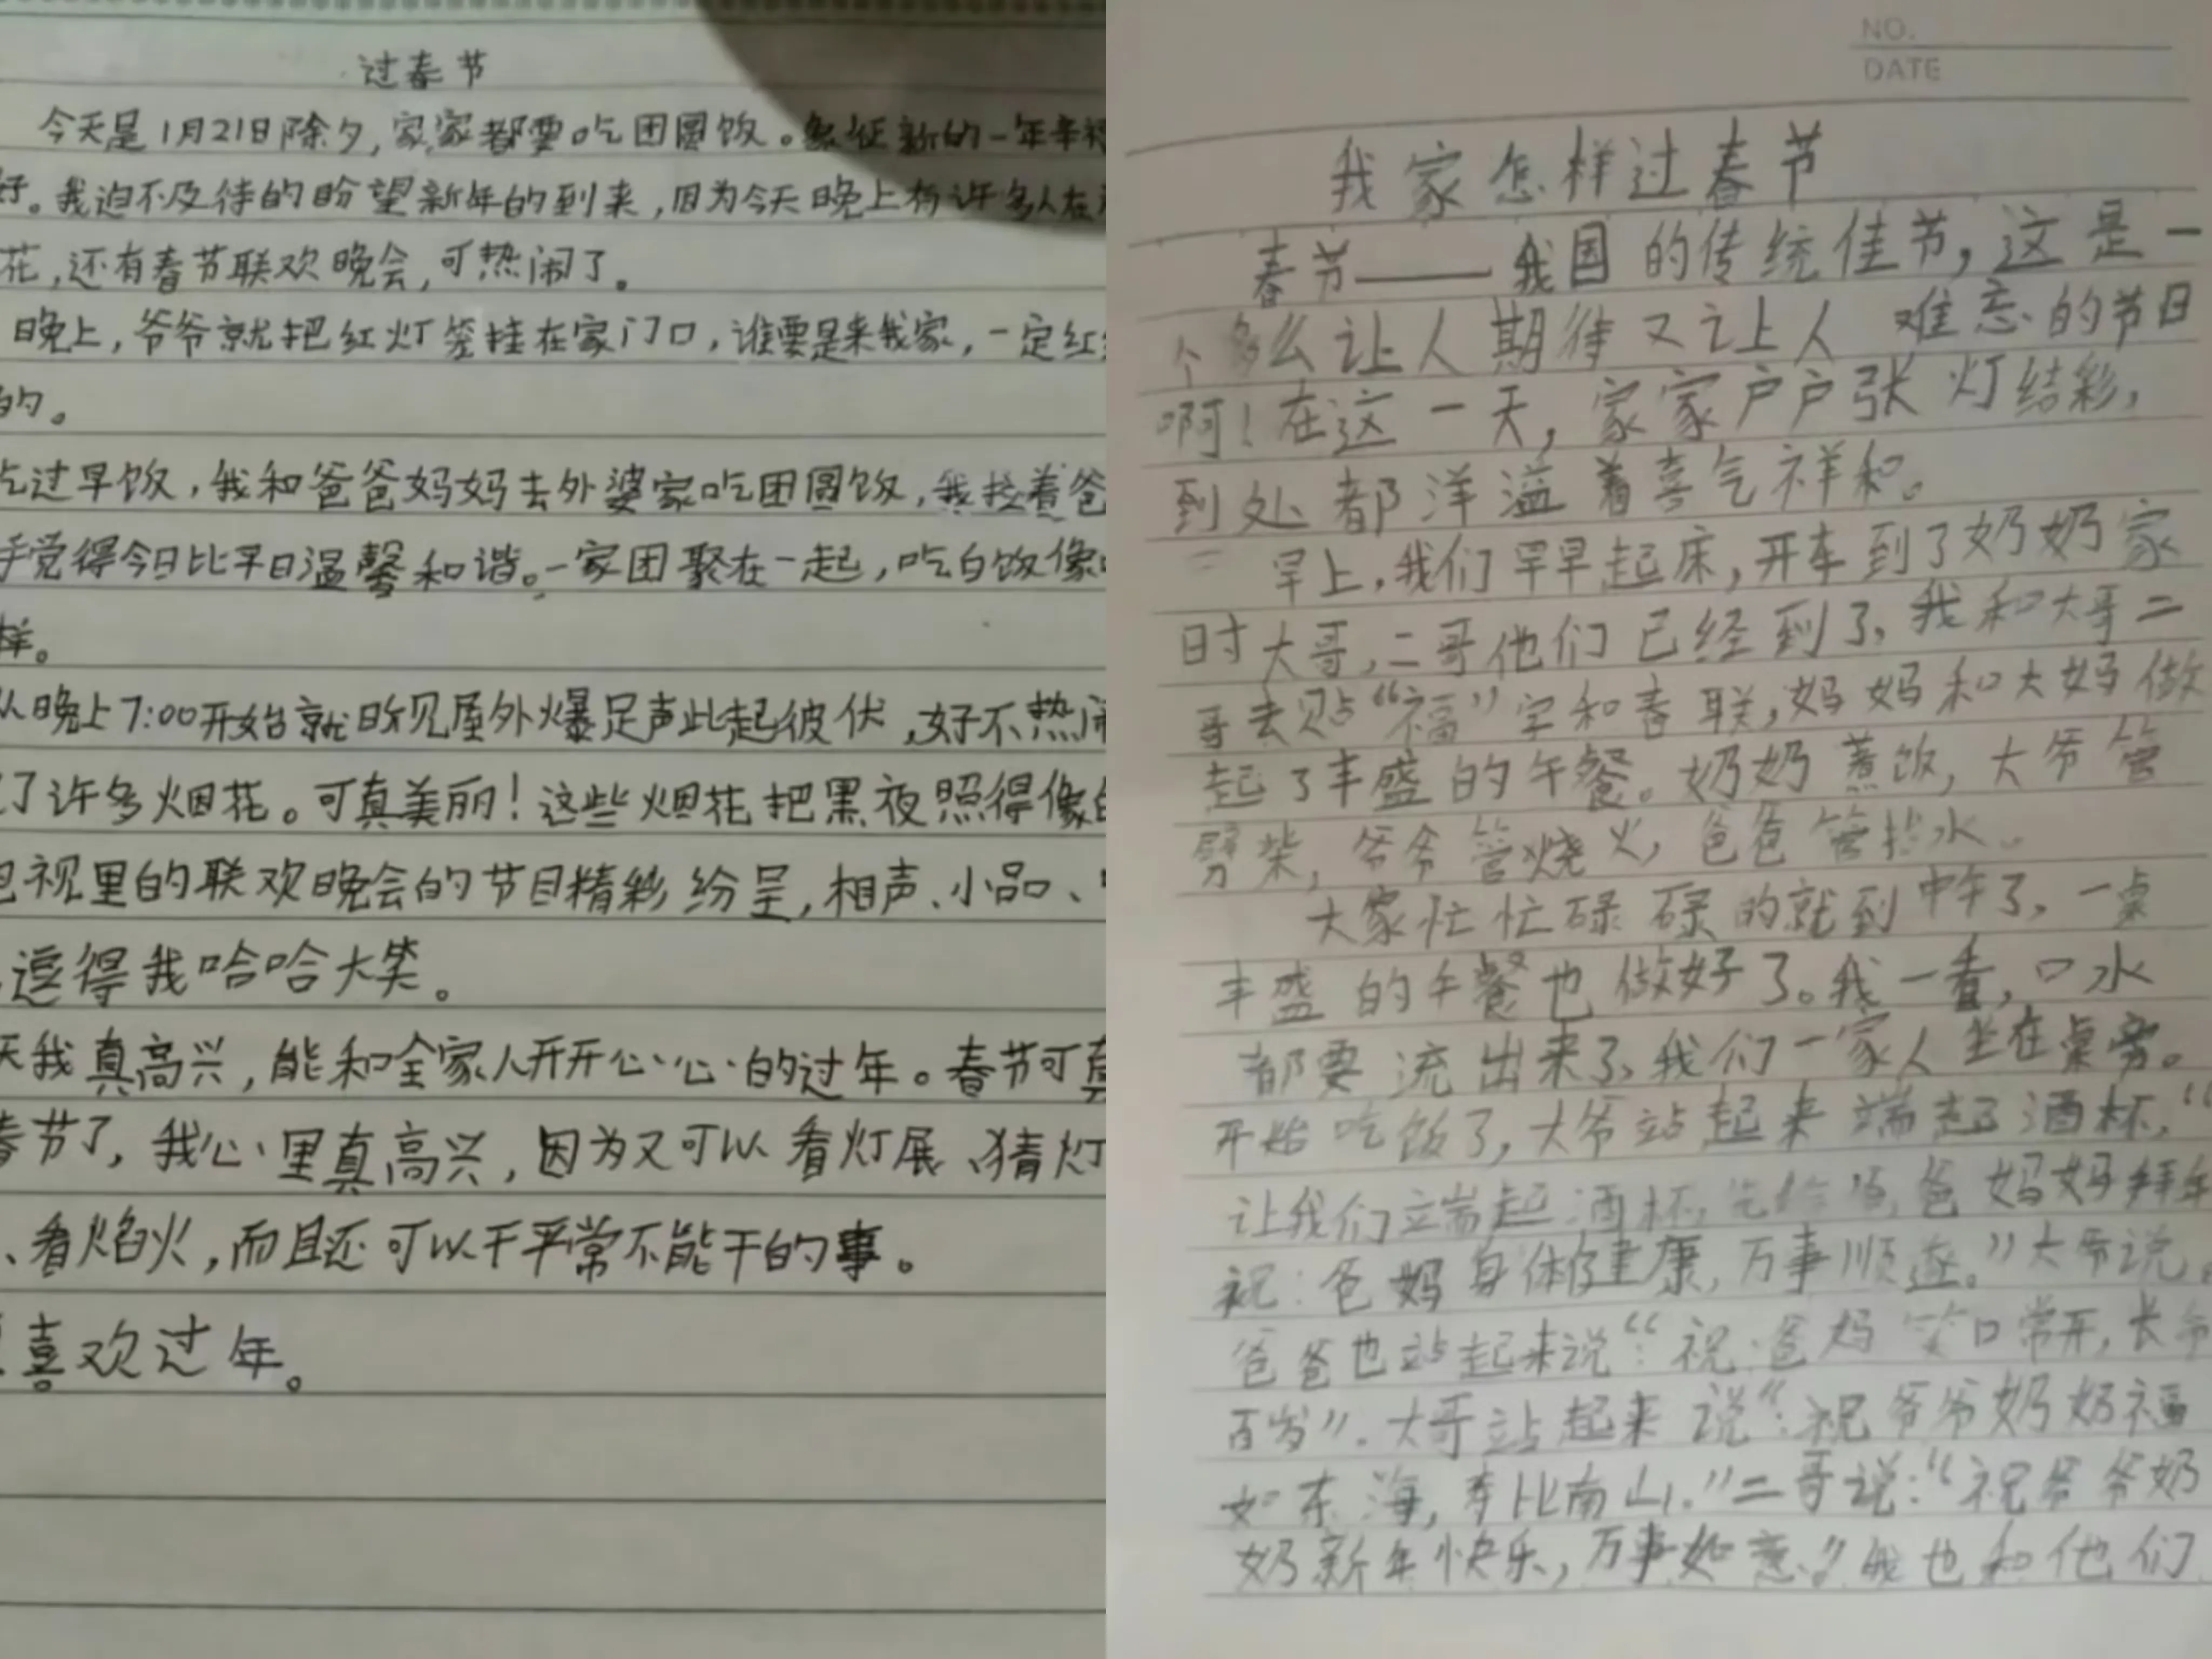 过春节
今天是1月21日除夕,家家都要吃团圆饭。象征新的一年幸福
好。我迫不及待的盼望新年的到来,因为今天晚上有许多人在
花,还有春节联欢晚会,可热闹了。
晚上,爷爷就把红灯笼挂在家门口,谁要是来我家,一定红
的。
吃过早饭,我和爸爸妈妈去外婆家吃团圆饭,我拉着爸
手觉得今日比平日温馨和谐。一家团聚在一起,吃白饭像
样。
从晚上7:00开始就听见屋外爆足声此起彼伏,好不热闹
了许多烟花。可真美丽!这些烟花把黑夜照得像白
电视里的联欢晚会的节目精彩纷呈,相声、小品、
逗得我哈哈大笑。
天我真高兴,能和全家人开开心心的过年。春节可真
春节了,我心里真高兴,因为又可以看灯展、猜灯
、看焰火,而且还可以干平常不能干的事。
喜欢过年。
NO.
DATE
我家怎样过春节
春节——我国的传统佳节,这是一
个多么让人期待又让人难忘的节日
啊!在这一天,家家户户张灯结彩,
到处都洋溢着喜气祥和。
早上,我们早早起床,开车到了奶奶家
时大哥,二哥他们已经到了,我和大哥二
哥去贴“福”字和春联,妈妈和大妈做
起了丰盛的午餐。奶奶蒸饭,大爷管
劈柴,爷爷管烧火,爸爸管挑水。
大家忙忙碌碌的就到中午了,一桌
丰盛的午餐也做好了。我一看,口水
都要流出来了,我们一家人坐在桌旁。
开始吃饭了,大爷站起来端起了酒杯,“
让我们端起酒杯,先给爸爸妈妈拜年
祝:爸妈身体健康,万事顺遂。”大爷说。
爸爸也站起来说“:祝爸妈笑口常开,长命
百岁”.大哥站起来说“:祝爷爷奶奶福
如东海,寿比南山.”二哥说:“祝爷爷奶
奶新年快乐,万事如意.”我也和他们